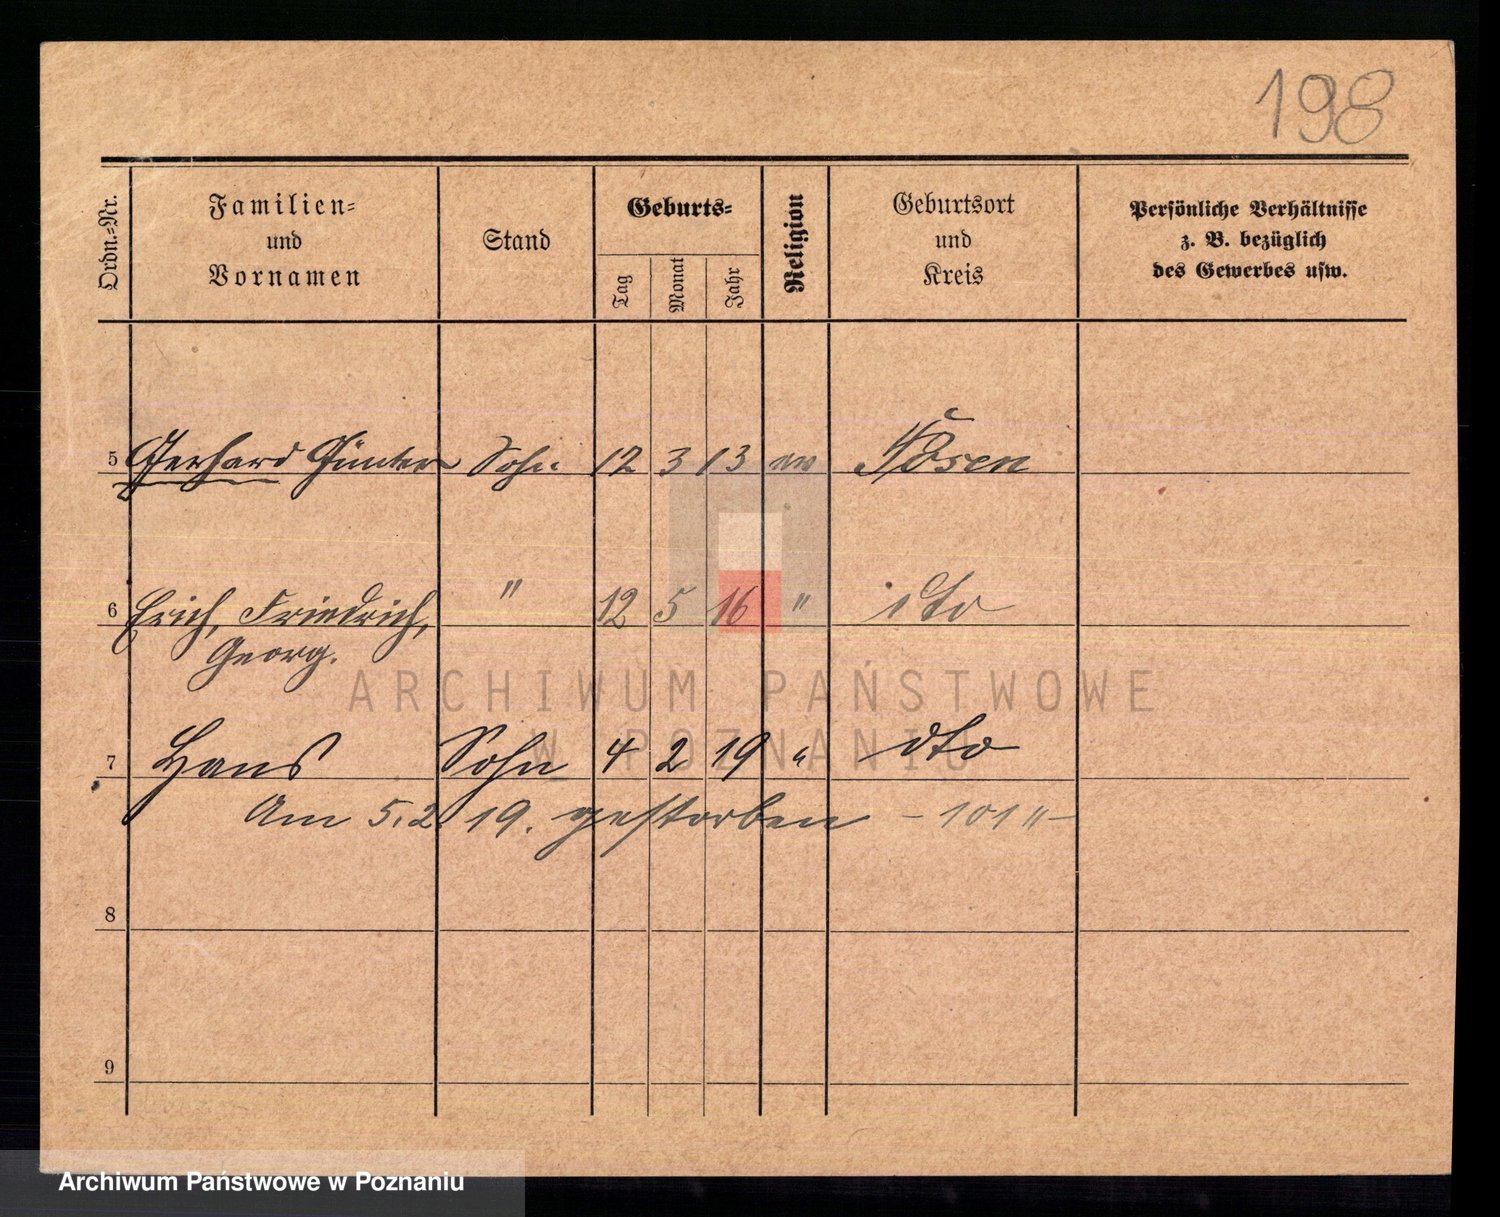 198
Ordn.-Nr.
Familien-
und
Vornamen
Stand
Geburts-
Tag
Monat
Jahr
Religion
Geburtsort
und
Kreis
Persönliche Verhältnisse
z. B. bezüglich
des Gewerbes usw.
5 Gerhard Günter Sohn 12 3 13 ev Posen
6 Erich, Friedrich, " 12 5 16 " dto
Georg.
7 Hans Sohn 4 2 19 " dto
Am 5.2.19. gestorben - 101 " -
8
9
ARCHIWUM PAŃSTWOWE
W POZNANIU
Archiwum Państwowe w Poznaniu